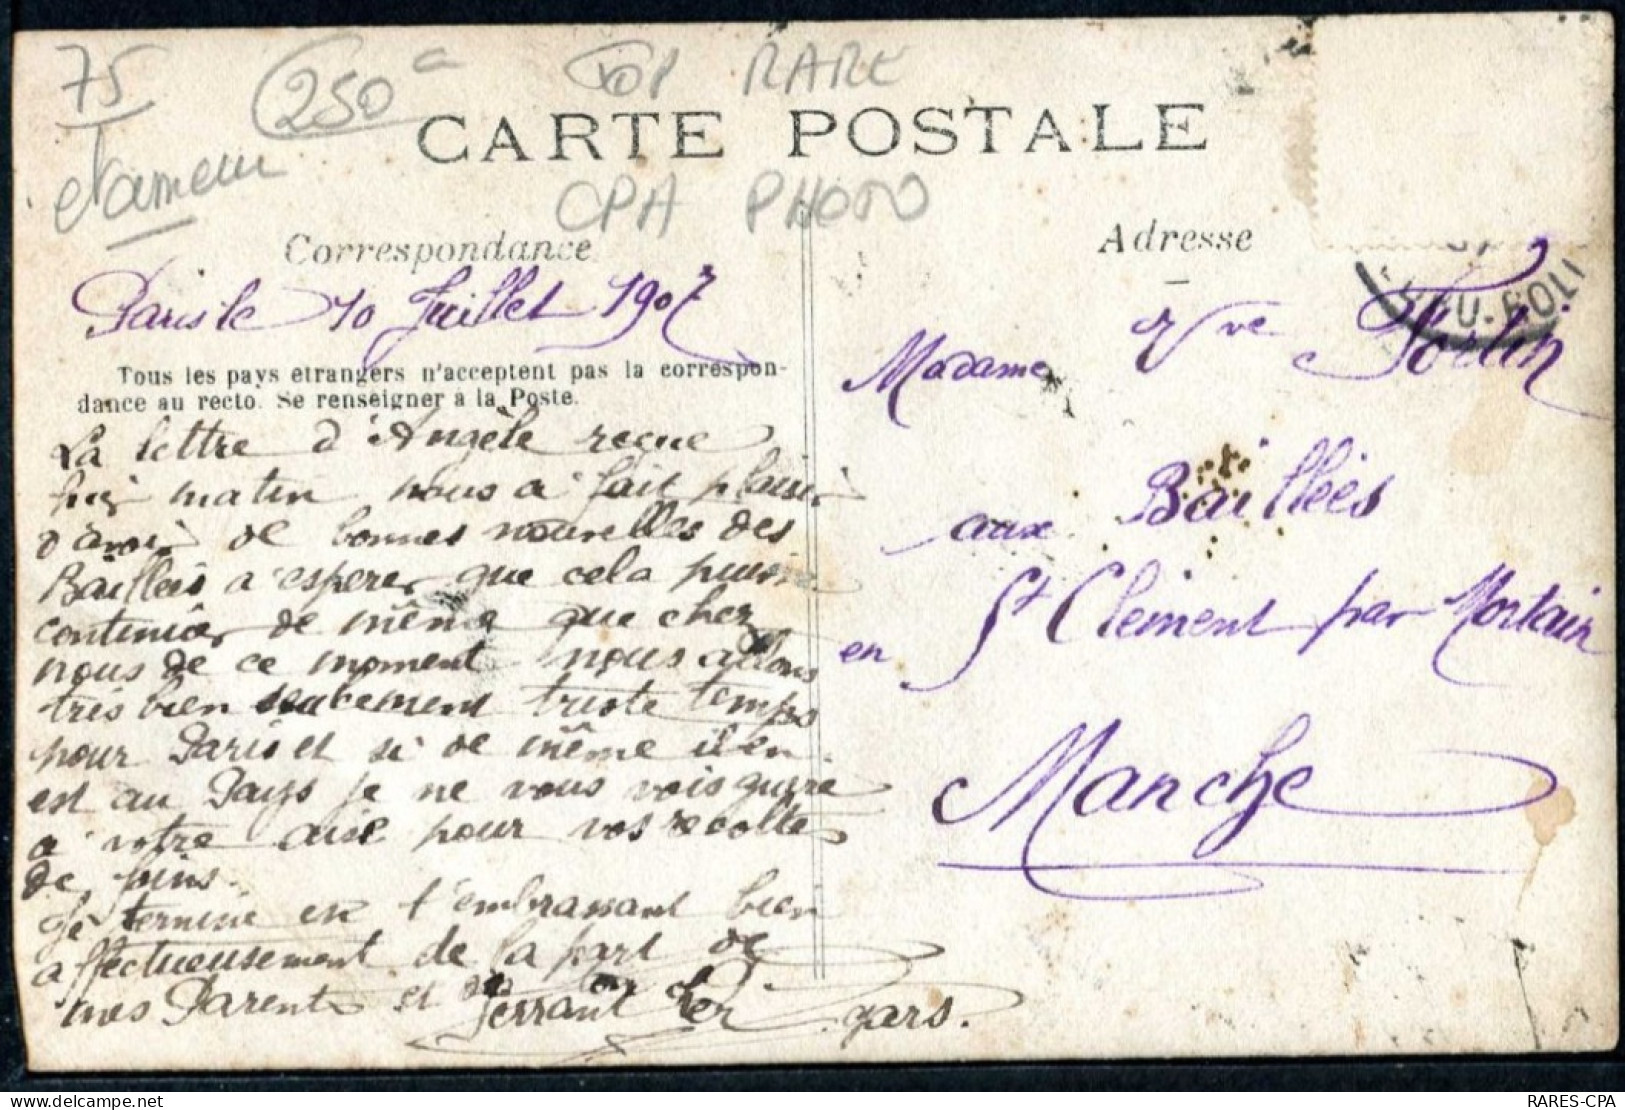 75
250
TOP RARE
étameur
CPA PHOTO
CARTE POSTALE
Correspondance
Adresse
Paris le 10 Juillet 1907
Tous les pays étrangers n'acceptent pas la correspon-
dance au recto. Se renseigner à la Poste.
La lettre d'Angèle reçue
matin nous a fait plaisir
d'avoir de bonnes nouvelles des
Baillées a espérer que cela puisse
continuer de même que chez
nous de ce moment nous allons
très bien seulement triste temps
pour Paris et si de même il en
est au Pays je ne vous vois guère
a votre aise pour vos récoltes
de foins.
Je termine en t'embrassant bien
affectueusement de la part de
mes Parents et de ton
gars.
Madame Vve Fortin
aux Baillées
en St Clément par Mortain
Manche
RARES-CPA